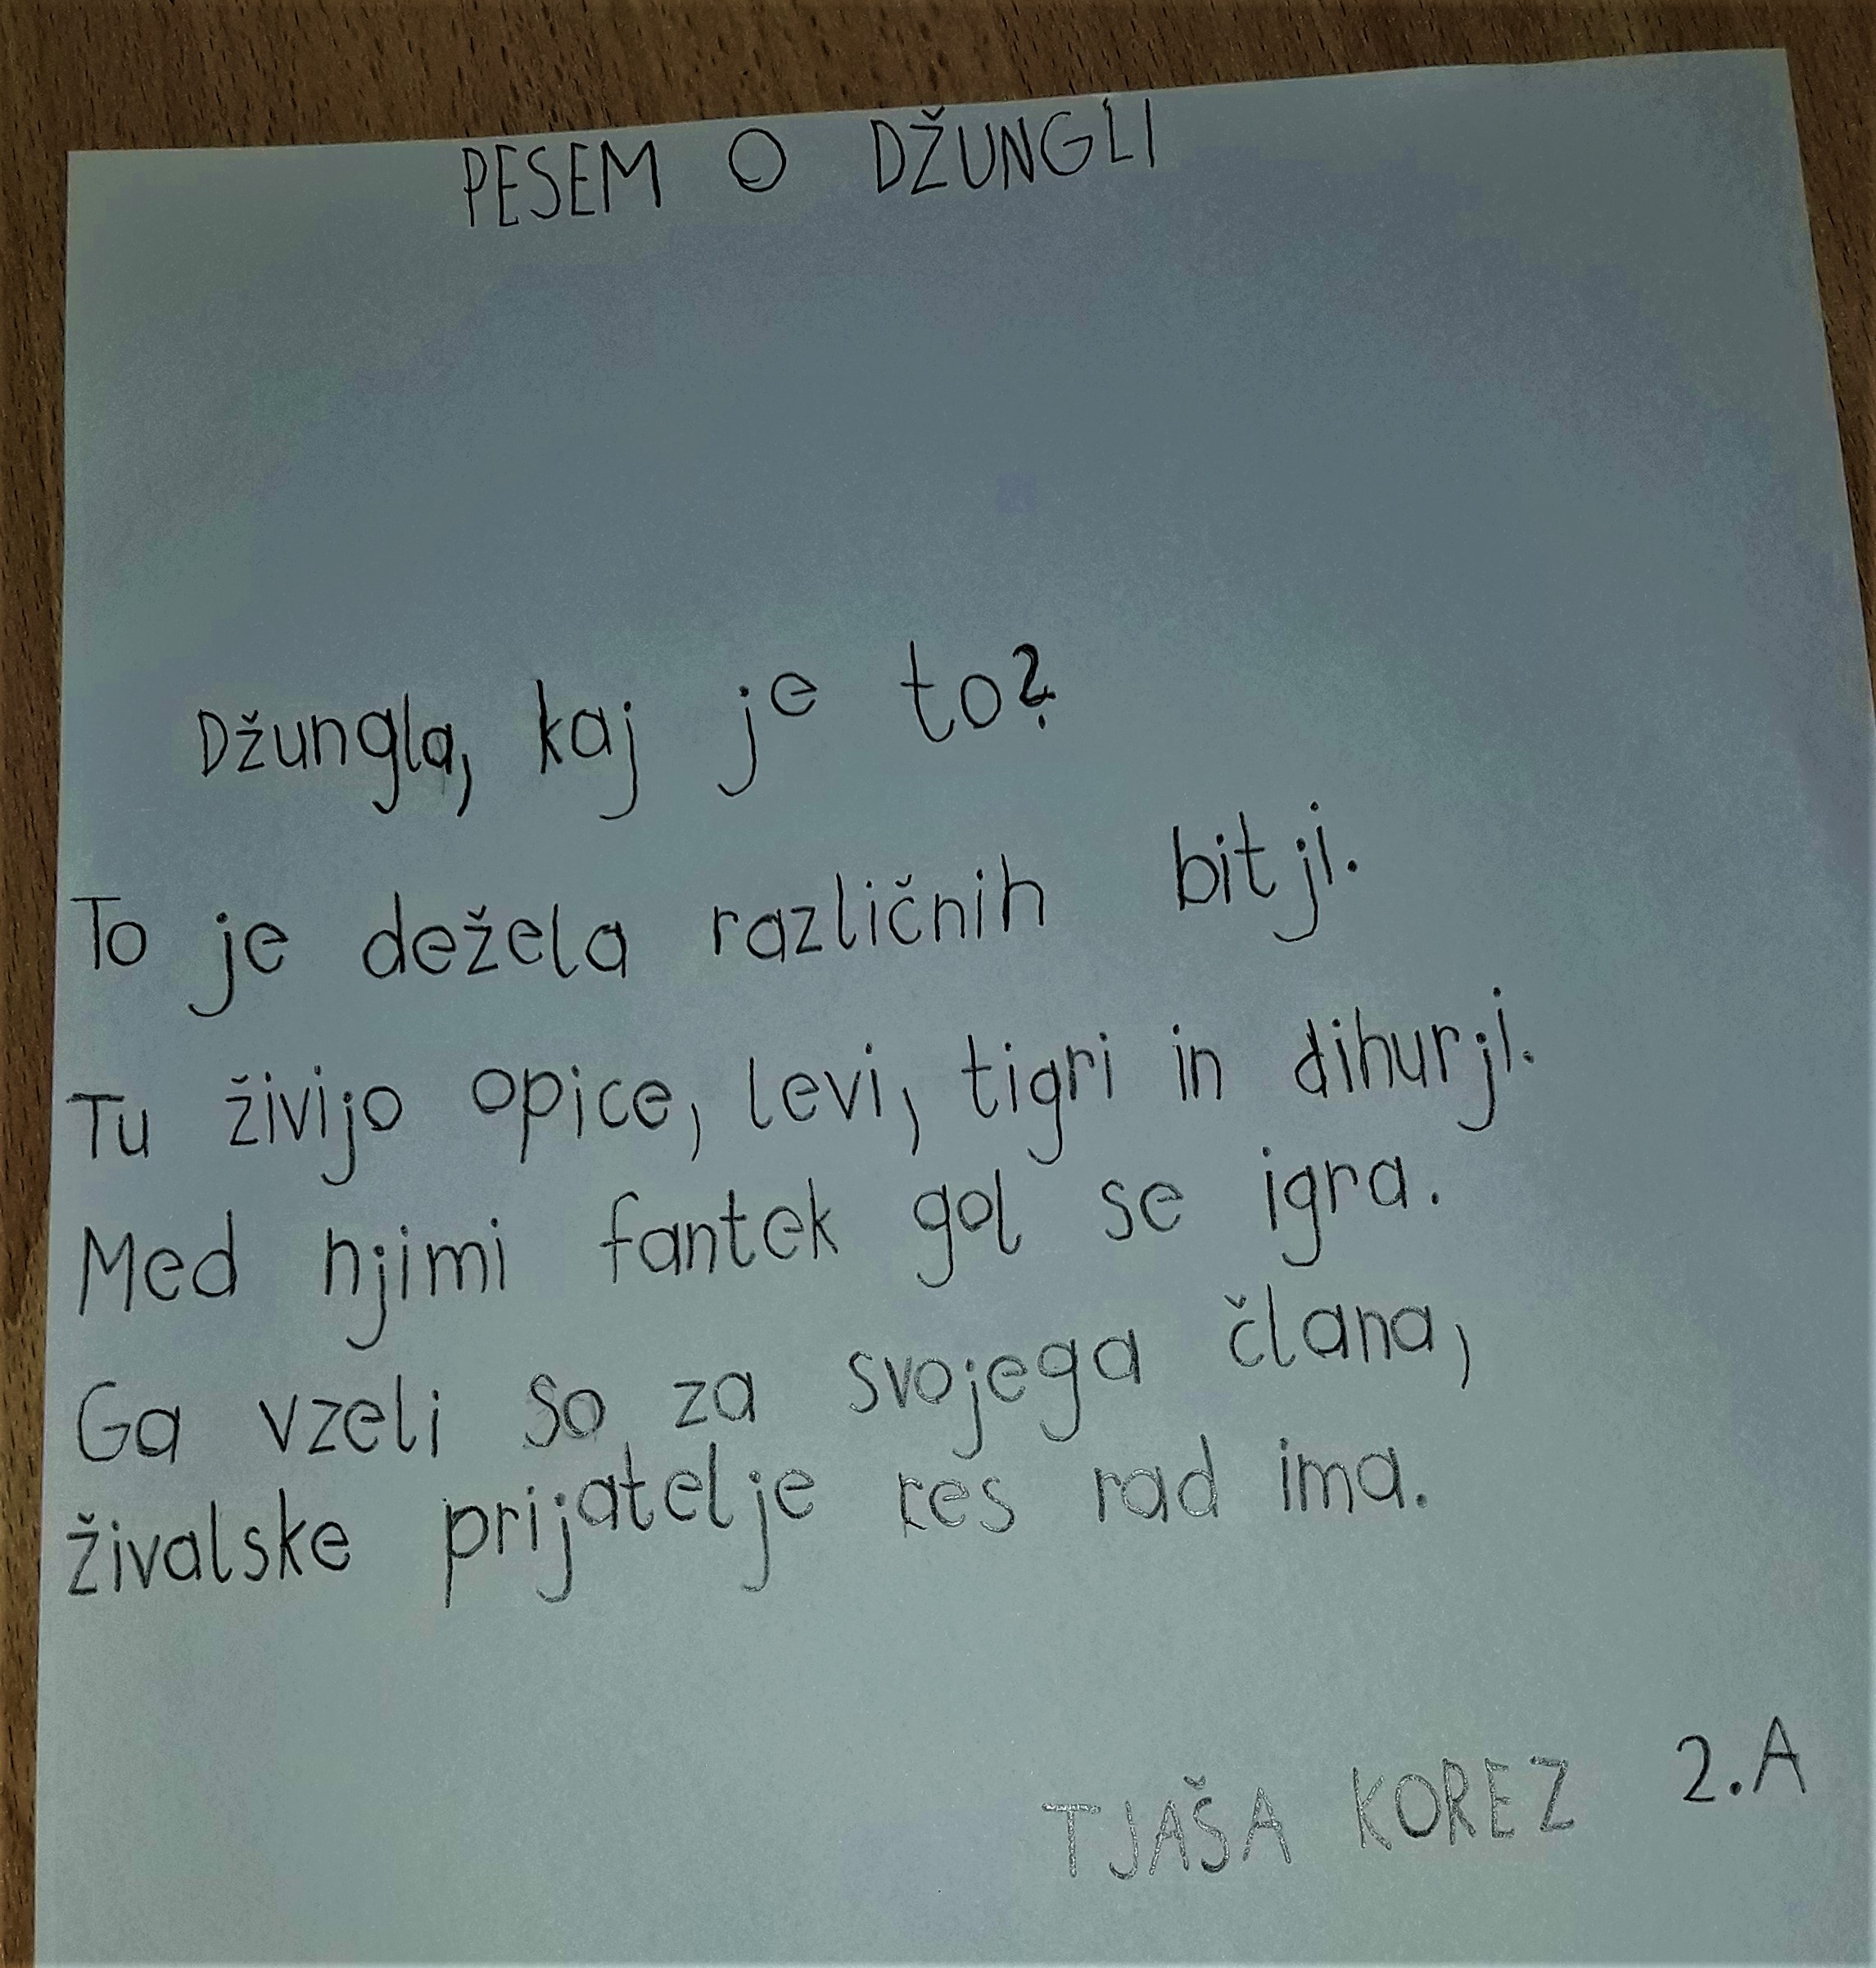 PESEM O DŽUNGLI
Džungla, kaj je to?
To je dežela različnih bitji.
Tu živijo opice, levi, tigri in dihurji.
Med njimi fantek gol se igra.
Ga vzeli so za svojega člana,
živalske prijatelje res rad ima.
TJAŠA KOREZ 2.A